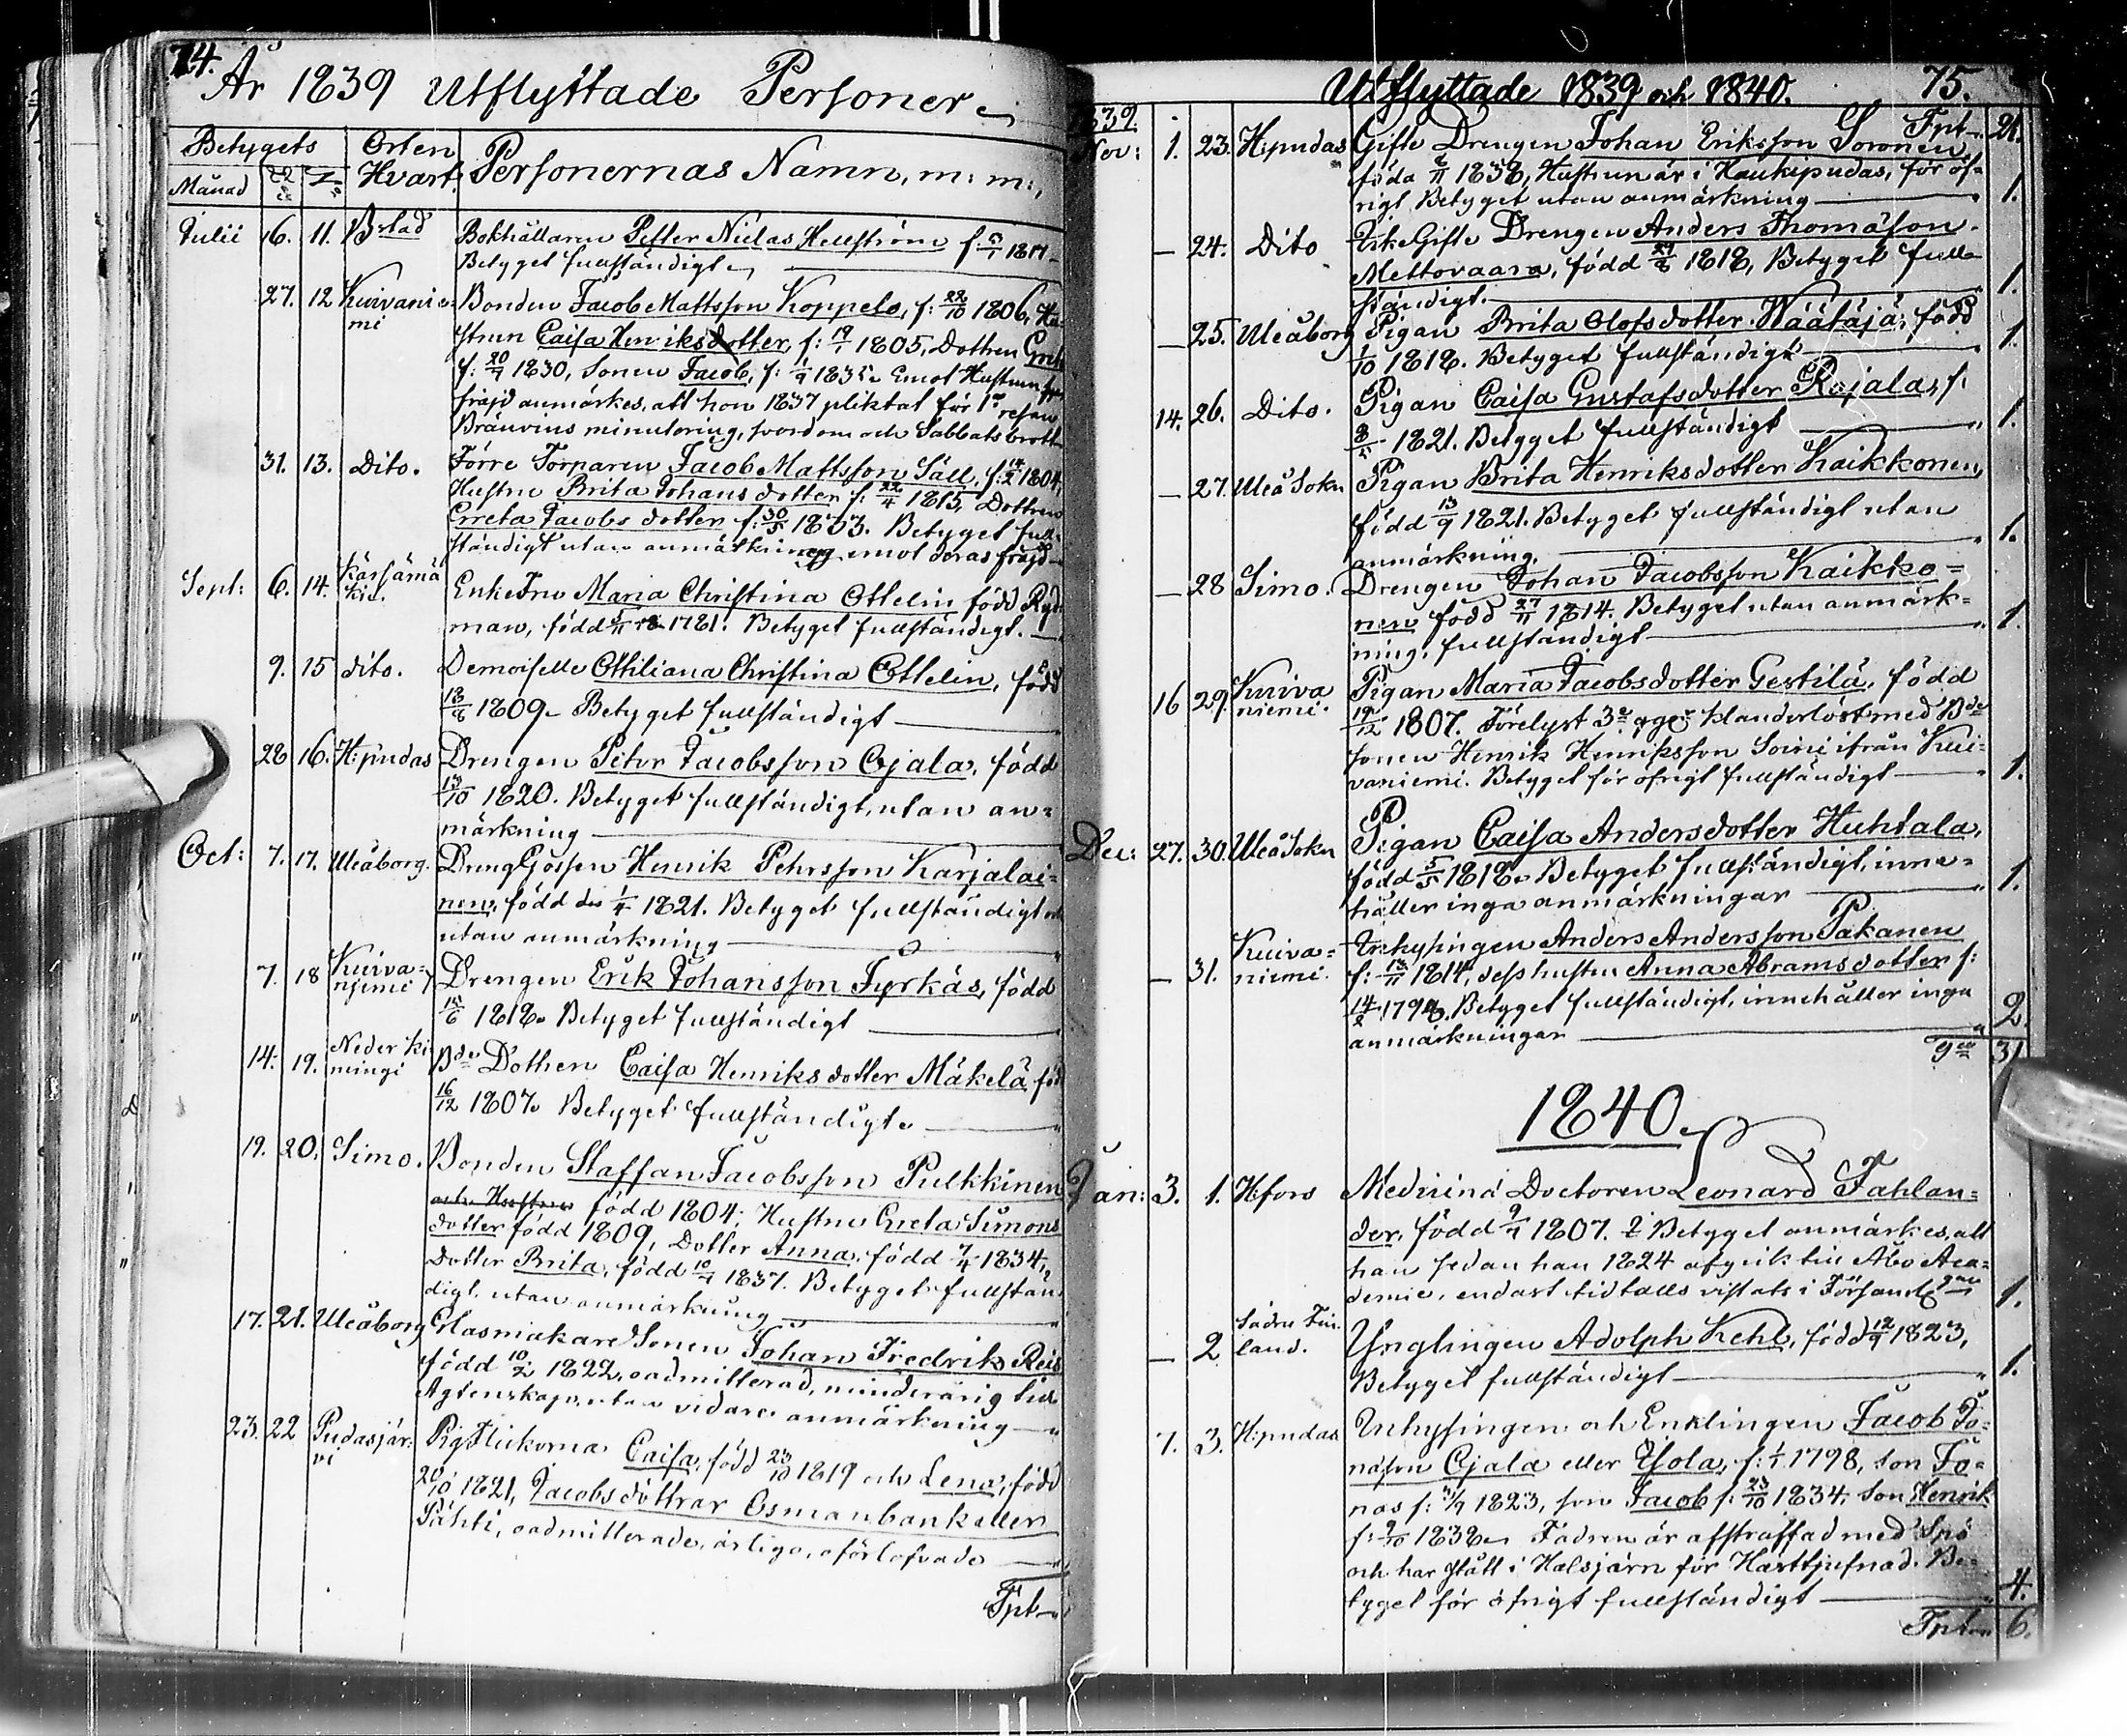 74.
År 1839 Utflyttade Personer
Betygets Orten Personernas Namn, m: m:,
Månad Hvart
Julii 16. 11. Bstad Bokhållaren Petter Niclas Hellström f: 1811
Betyget fullständigt
27. 12 Kuivanie= Bonden Jacob Mattsson Koppelo, f: 22/10 1806, Hu=
mi strun Caisa Henriksdotter, f: 19/1 1805, Dottren Greta
f: 20/7 1830, Sonen Jacob, f: 1/9 1835. Emot Hustruns
fräjd anmärkes, att hon 1837 pliktat för 1a resan
Bränvins minutering, svordom och Sabbatsbrott
31. 13. Dito. Förre Torparen Jacob Mattsson Säll, f: 14/2 1804,
Hustru Brita Johans dotter f: 22/4 1815, Dottren
Greta Jacobs dotter f: 30/5 1833. Betyget full=
ständigt utan anmärkning emot deras fräjd
Sept: 6. 14. Kärsämä Enkefru Maria Christina Ottelin född Ryd
kie. man, född 1781. Betyget fullständigt.
9. 15 dito. Demoiselle Othiliana Christina Ottelin, född
13/8 1809. Betyget fullständigt
28 16. H:pudas Drengen Petter Jacobsson Ojala, född
13/10 1820. Betyget fullständigt, utan an=
märkning
Oct: 7. 17. Uleåborg. DrengGossen Henrik Pehrsson Karjalai=
nen, född den 1/4 1821. Betyget fullständigt och
utan anmärkning
7. 18 Kuiva= Drengen Erik Johansson Tyrkäs, född
niemi 15/6 1818. Betyget fullständigt
14. 19. Neder Ki Bde Dottren Caisa Henriks dotter Mäkelä, föd
mingi 16/12 1807. Betyget fullständigt.
19. 20. Simo. Bonden Staffan Jacobsson Pulkkinen
och Hustrun född 1804; Hustru Greta Simons
dotter född 1809, Dotter Anna, född 7/4 1834,
Dotter Brita, född 10/4 1837. Betyget fullstän
digt utan anmärkning
17. 21. Uleåborg Glasmakare Sonen Johan Fredrik Reis
född 10/2 1822, oadmitterad, minderårig till
Agtenskap, utan vidare anmärkning
23. 22 Pudasjär= PigFlickorna Caisa, född 23/10 1819 och Lena, född
vi 20/10 1821, Jacobs döttrar Osmanbank eller
Pähti, oadmitterade, ärliga, oförlofvade
Tpt
Utflyttade 1839 och 1840. 75.
1839 Tpt 21.
Nov: 1. 23. H:pudas Gifte Drengen Johan Eriksson Soronen,
föda 1838, Hustrun är i Haukipudas, för öf=
rigt Betyget utan anmärkning 1.
— 24. Dito Gifte Drengen Anders Thomasson
Mettovaara, född 29/8 1818, Betyget full=
ständigt. 1.
— 25. Uleåborg Pigan Brita Olofsdotter Wäätäjä, född
1/10 1818. Betyget fullständigt 1.
14. 26. Dito. Pigan Caisa Gustafsdotter Rajala, f:
8/5 1821. Betyget fullständigt 1.
— 27. Uleå Sokn Pigan Brita Henriksdotter Kaikkonen,
född 13/9 1821. Betyget fullständigt utan
anmärkning. 1.
— 28 Simo. Drengen Johan Jacobsson Kaikko=
nen född 27/11 1814. Betyget utan anmärk=
ning, fullständigt 1.
16 29 Kuiva Pigan Maria Jacobsdotter Gestilä, född
niemi. 19/12 1807. Förelyst 3e klanderlöst med Bde
sonen Henrik Henriksson Soini ifrån Kui=
vaniemi. Betyget för öfrigt fullständigt 1.
Dec: 27. 30. Uleå Sokn Pigan Caisa Andersdotter Huhtala,
född 5/5 1818. Betyget fullständigt, inne=
håller inga anmärkningar 1.
— 31. Kuiva= Inhysingen Anders Andersson Pakanen
niemi. f: 13/11 1814, dess hustru Anna Abramsdotter f:
14/2 179 Betyget fullständigt, innehåller inga
anmärkningar 2.
31
1840.
Jan: 3. 1. H:fors Medicinä Doctoren Leonard Fahlan=
der, född 9/1 1807. I Betyget anmärkes, att
han sedan han 1824 afgick till Åbo Aca=
demie, endast tidtals vistats i Församl 1.
— 2. Södra Fin Ynglingen Adolph Kehl, född 12/9 1823,
land. Betyget fullständigt 1.
7. 3. H:pudas Inhysingen och Enklingen Jacob Jo=
nasson Ojala eller Esola, f: 1/1 1798, son Jo=
nas f: 1823, son Jacob f: 23/10 1834, Son Henrik
f: 9/10 1838. Fadren är afstraffad med Spö
och har stått i Halsjärn för Hästtjufnad. Be=
tyget för öfrigt fullständigt 4.
Tpt 6.